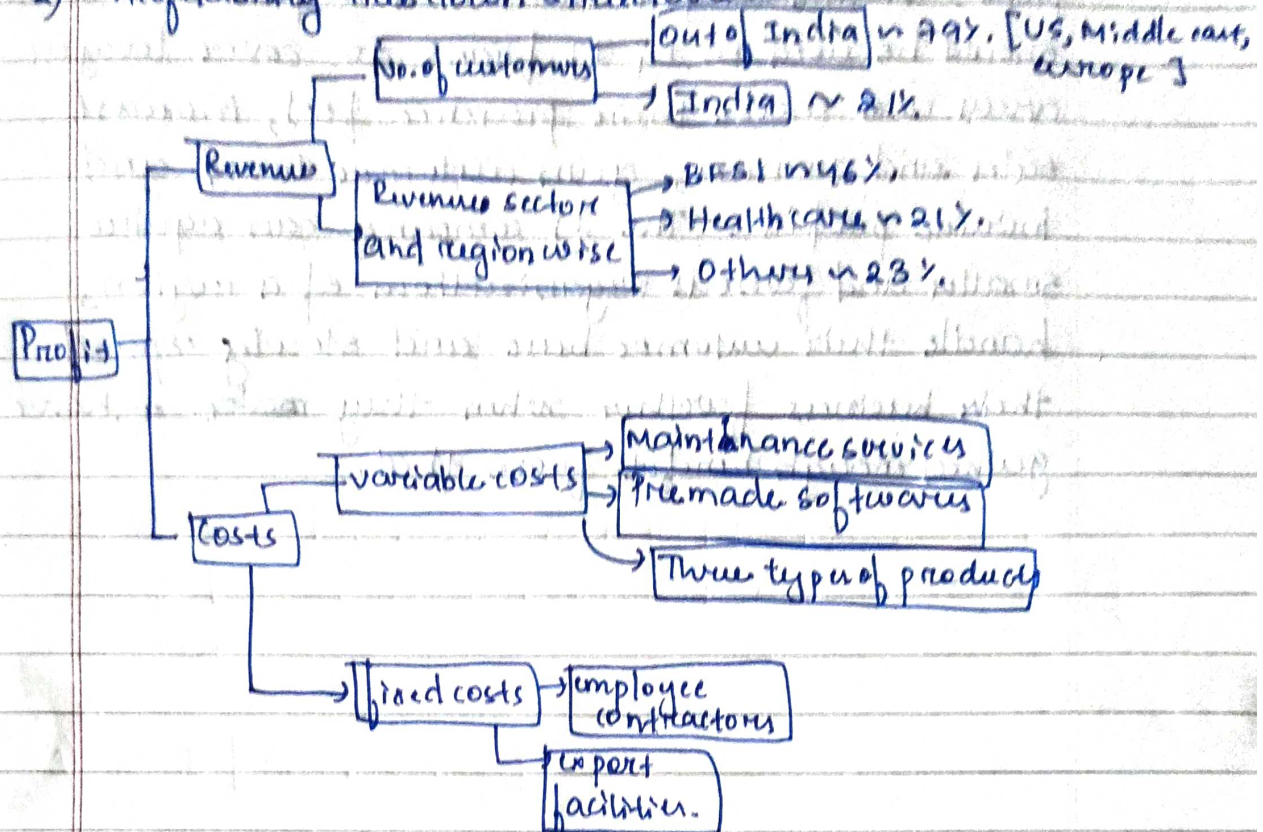 No. of customers
Out of India ~ 79%. [US, Middle east,
europe]
India ~ 21%.
Revenues
Revenues sectore
and region wise
BFSI ~ 46%.
Healthcare ~ 21%.
Others ~ 23%.
Profit
variable costs
Maintenance services
Premade softwares
Three types of products
Costs
fixed costs
employee
contractors
Export
facilities.